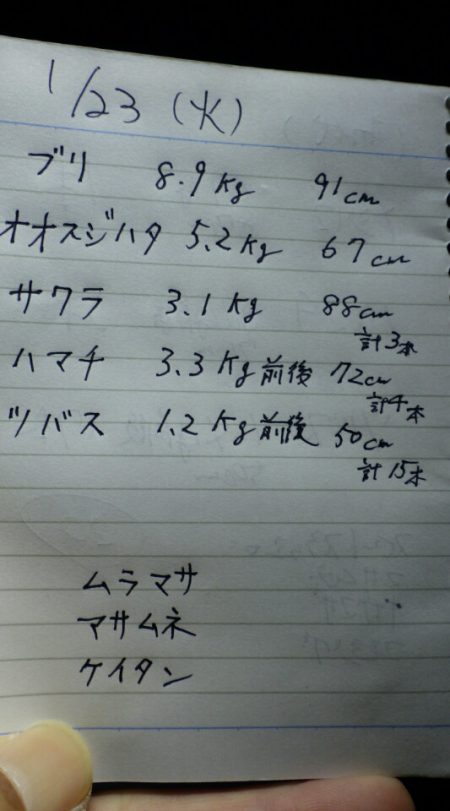 1/23 (火)
ブリ 8.9kg 91cm
オオスジハタ 5.2kg 67cm
サワラ 3.1kg 88cm
計3本
ハマチ 3.3kg前後 72cm
計4本
ツバス 1.2kg前後 50cm
計15本
ムラマサ
マサムネ
ケイタン